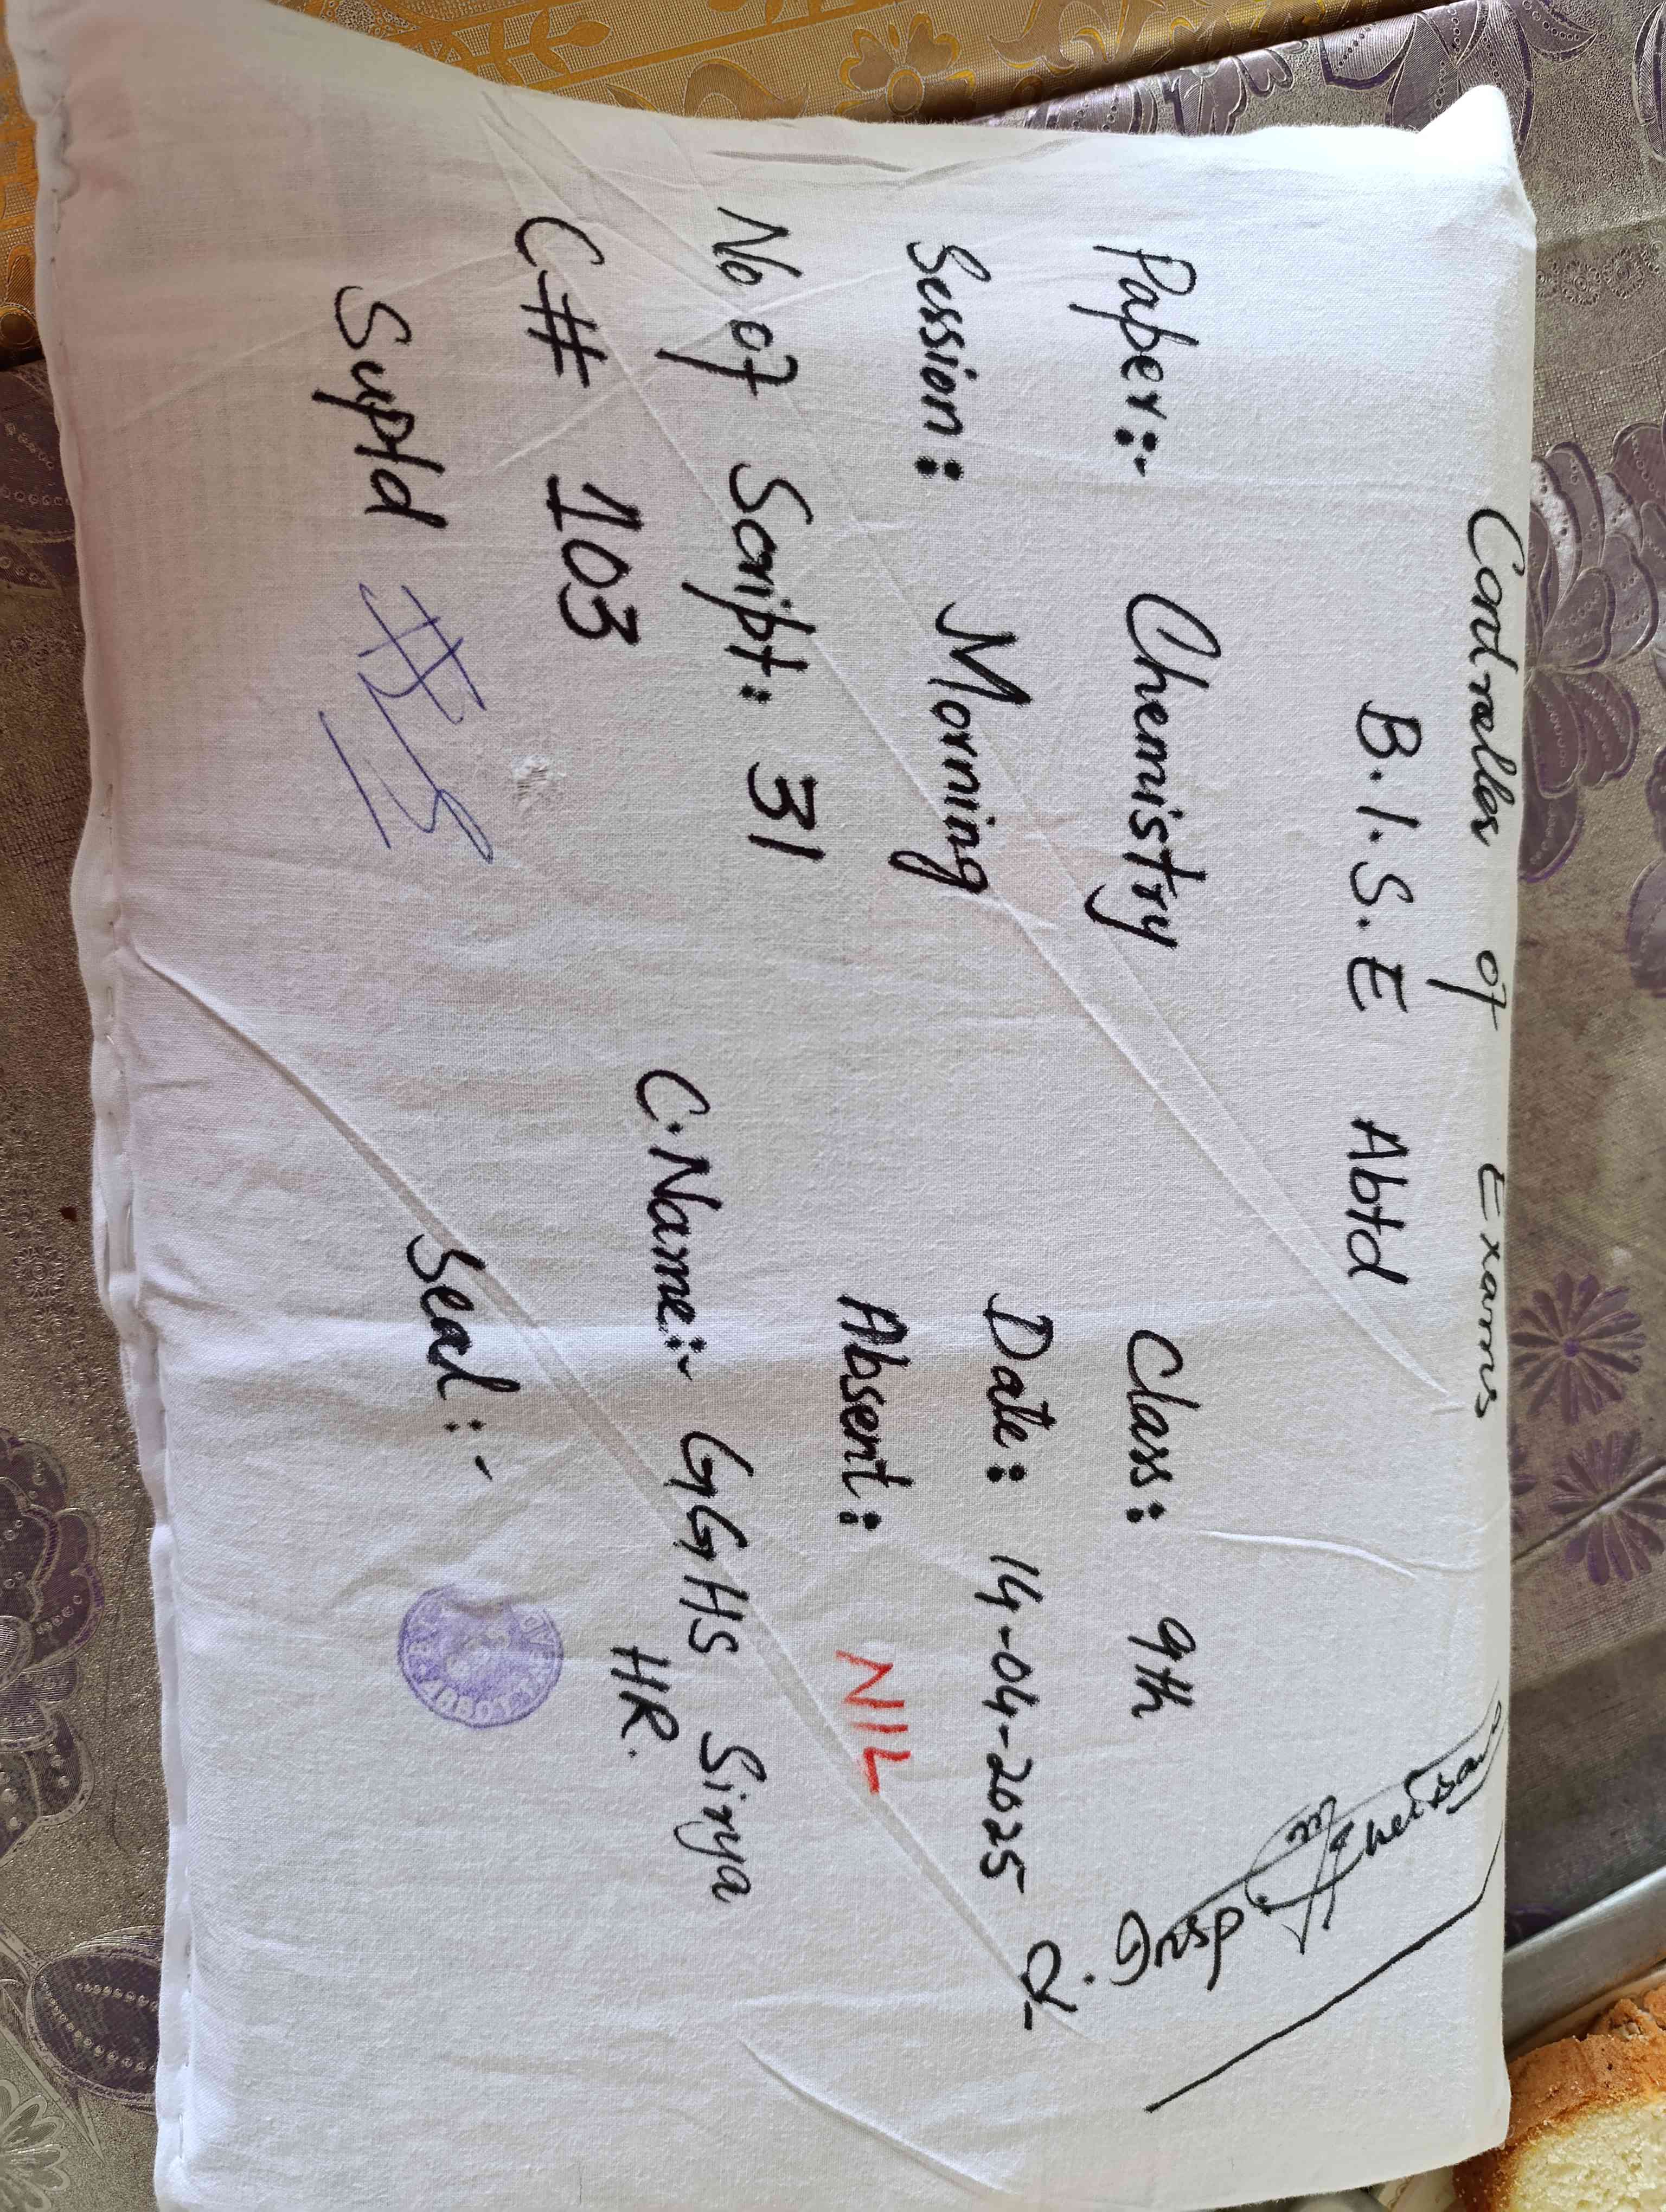 Controller of Exams
B.I.S.E Abtd
Paper:- Chemistry Class: 9th
Session: Morning Date: 14-04-2025
No of Script: 31 Absent: NIL
C# 103 C.Name:- GGHS Sirya
HR.
Suptd Seal:-